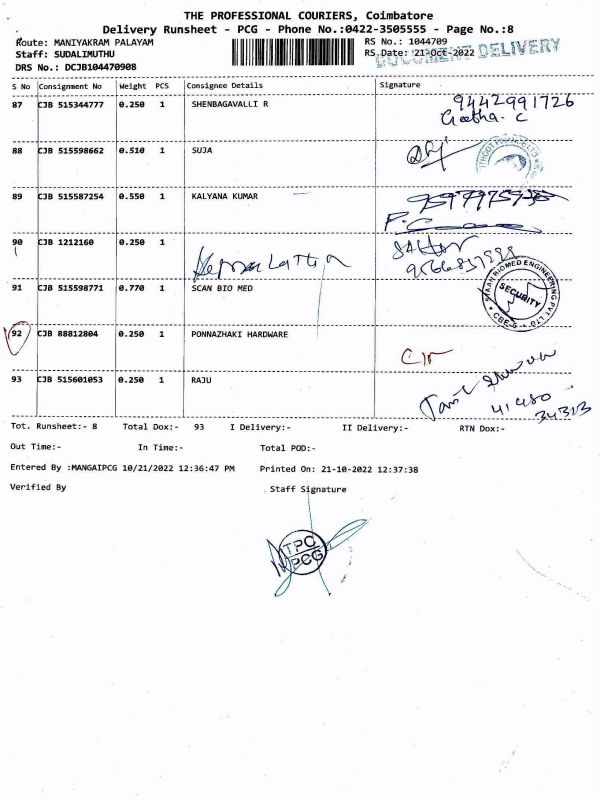 THE PROFESSIONAL COURIERS, Coimbatore
Delivery Runsheet - PCG - Phone No.:0422-3505555 - Page No.:8
Route: MANIYAKRAM PALAYAM
RS No.: 1044709
Staff: SUDALIMUTHU
RS Date: 21-Oct-2022
DOCUMENT DELIVERY
DRS No.: DCJB104470908
S No Consignment No Weight PCS Consignee Details Signature
87 CJB 515344777 0.250 1 SHENBAGAVALLI R 9442991726
Geetha. C
88 CJB 515598662 0.510 1 SUJA
89 CJB 515587254 0.550 1 KALYANA KUMAR
90 CJB 1212160 0.250 1
91 CJB 515598771 0.770 1 SCAN BIO MED
SECURITY
92 CJB 88812804 0.250 1 PONNAZHAKI HARDWARE
93 CJB 515601053 0.250 1 RAJU
41480
34323
Tot. Runsheet:- 8 Total Dox:- 93 I Delivery:- II Delivery:- RTN Dox:-
Out Time:- In Time:- Total POD:-
Entered By :MANGAIPCG 10/21/2022 12:36:47 PM Printed On: 21-10-2022 12:37:38
Verified By Staff Signature
TPC
PCG